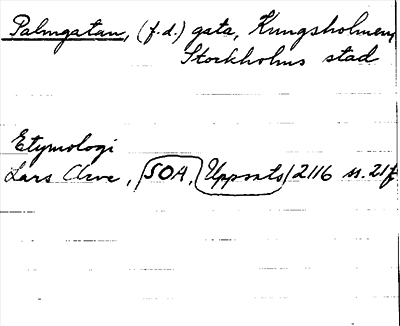 Palmgatan, (f.d.) gata, Kungsholmen,
Stockholms stad
Etymologi
Lars Arve, SOA, Uppsats 2116 s. 21f